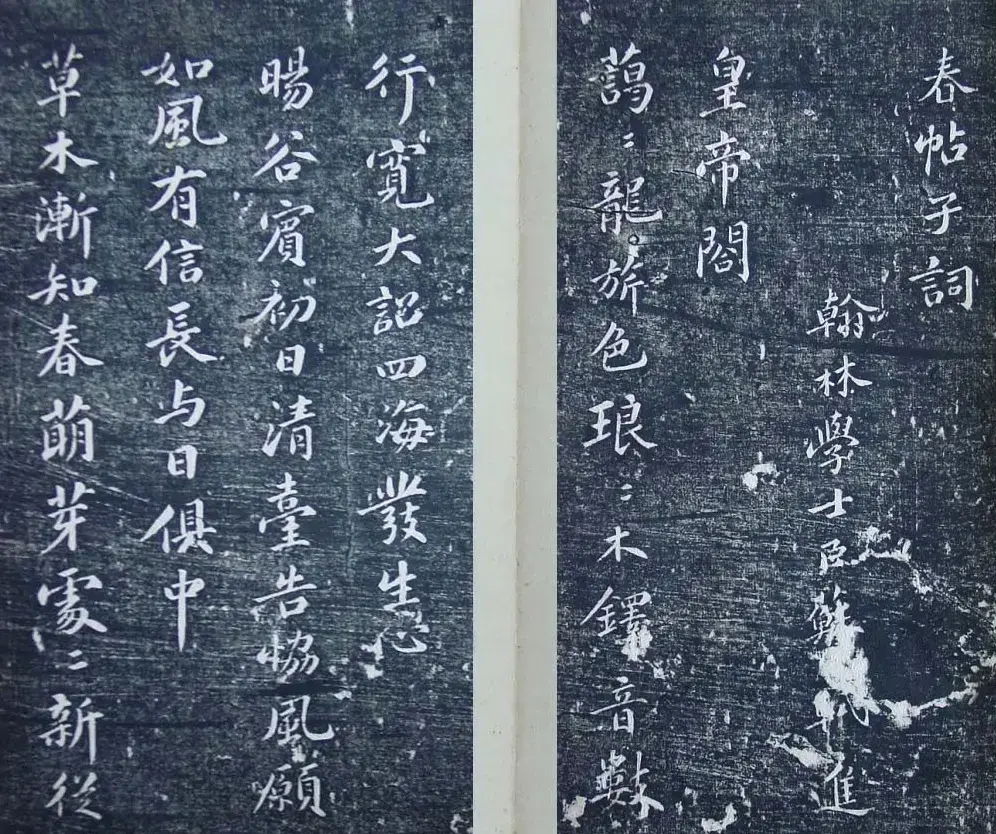 春帖子詞
翰林學士臣蘇軾進
皇帝閣
藹〻龍旂色琅〻木鐸音數
行寬大詔四海發生心
暘谷賓初日清臺告協風願
如風有信長与日俱中
草木漸知春萌芽處〻新從